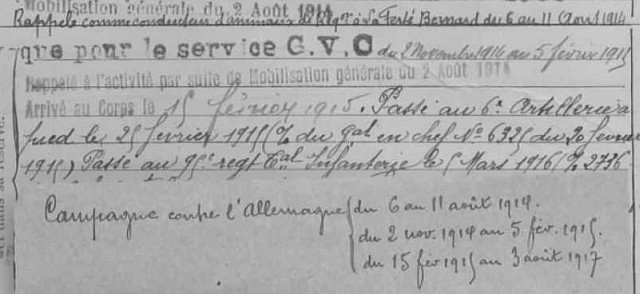 Mobilisation générale du 2 Août 1914
Rappelé comme conducteur d'animaux de Réqon à La Ferté Bernard du 6 au 11 Aout 1914
que pour le service G.V.C du 2 Novembre 1914 au 5 février 1915
Rappelé à l'activité par suite de Mobilisation générale du 2 Août 1914
Arrivé au Corps le 15 février 1915. Passé au 6e Artillerie à
pied le 25 février 1915 (% du gal en chef No 6325 du 20 février
1915) Passé au 95e regt Tal Infanterie le 5 Mars 1916 % 2736
Campagne contre l'Allemagne { du 6 au 11 août 1914.
du 2 nov. 1914 au 5 fév. 1915.
du 15 fév 1915 au 3 août 1917